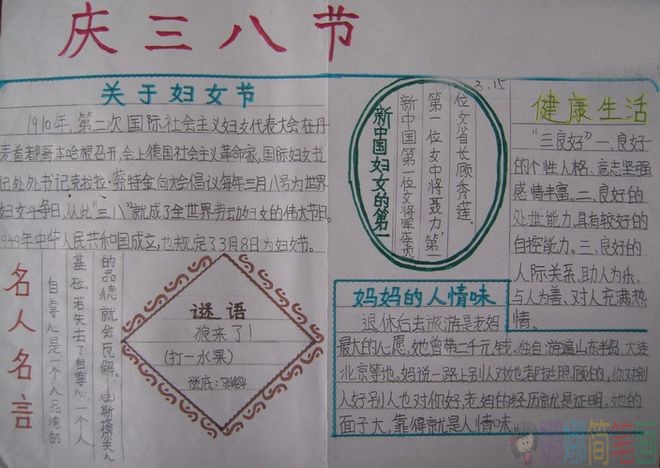 庆三八节
关于妇女节
1910年,第二次国际社会主义妇女代表大会在丹
麦首都哥本哈根召开,会上德国社会主义革命家,国际妇女书
记处处书记克拉拉·蔡特金向大会倡议每年三月八号为世界
妇女斗争日,从此"三八"就成了全世界劳动妇女的伟大节日。
1949年中华人民共和国成立,也规定了3月8日为妇女节。
3.15
新中国妇女的第一
新中国第一位女将军
第一位女中将聂力"第一
位女省长顾秀莲。
健康生活
"三良好"一、良好
的个性人格,意志坚强
感情丰富。二、良好的
处世能力,具有较好的
自控能力。三、良好的
人际关系,助人为乐,
与人为善,对人充满热
情。
名人名言
自尊心是一个人品德的
基础,若失去了自尊心,一个人
的品德就会瓦解。
谜语
狼来了!
(打一水果)
谜底:
妈妈的人情味
退休后去旅游是老妈
最大的心愿,她曾带二千元钱,独自游遍山东半岛,大连
北京等地。妈说一路上别人对她都挺照顾的,你对别
人好别人也对你好,老妈的经历就是证明,她的
面子大,靠得就是人情味。
简笔画